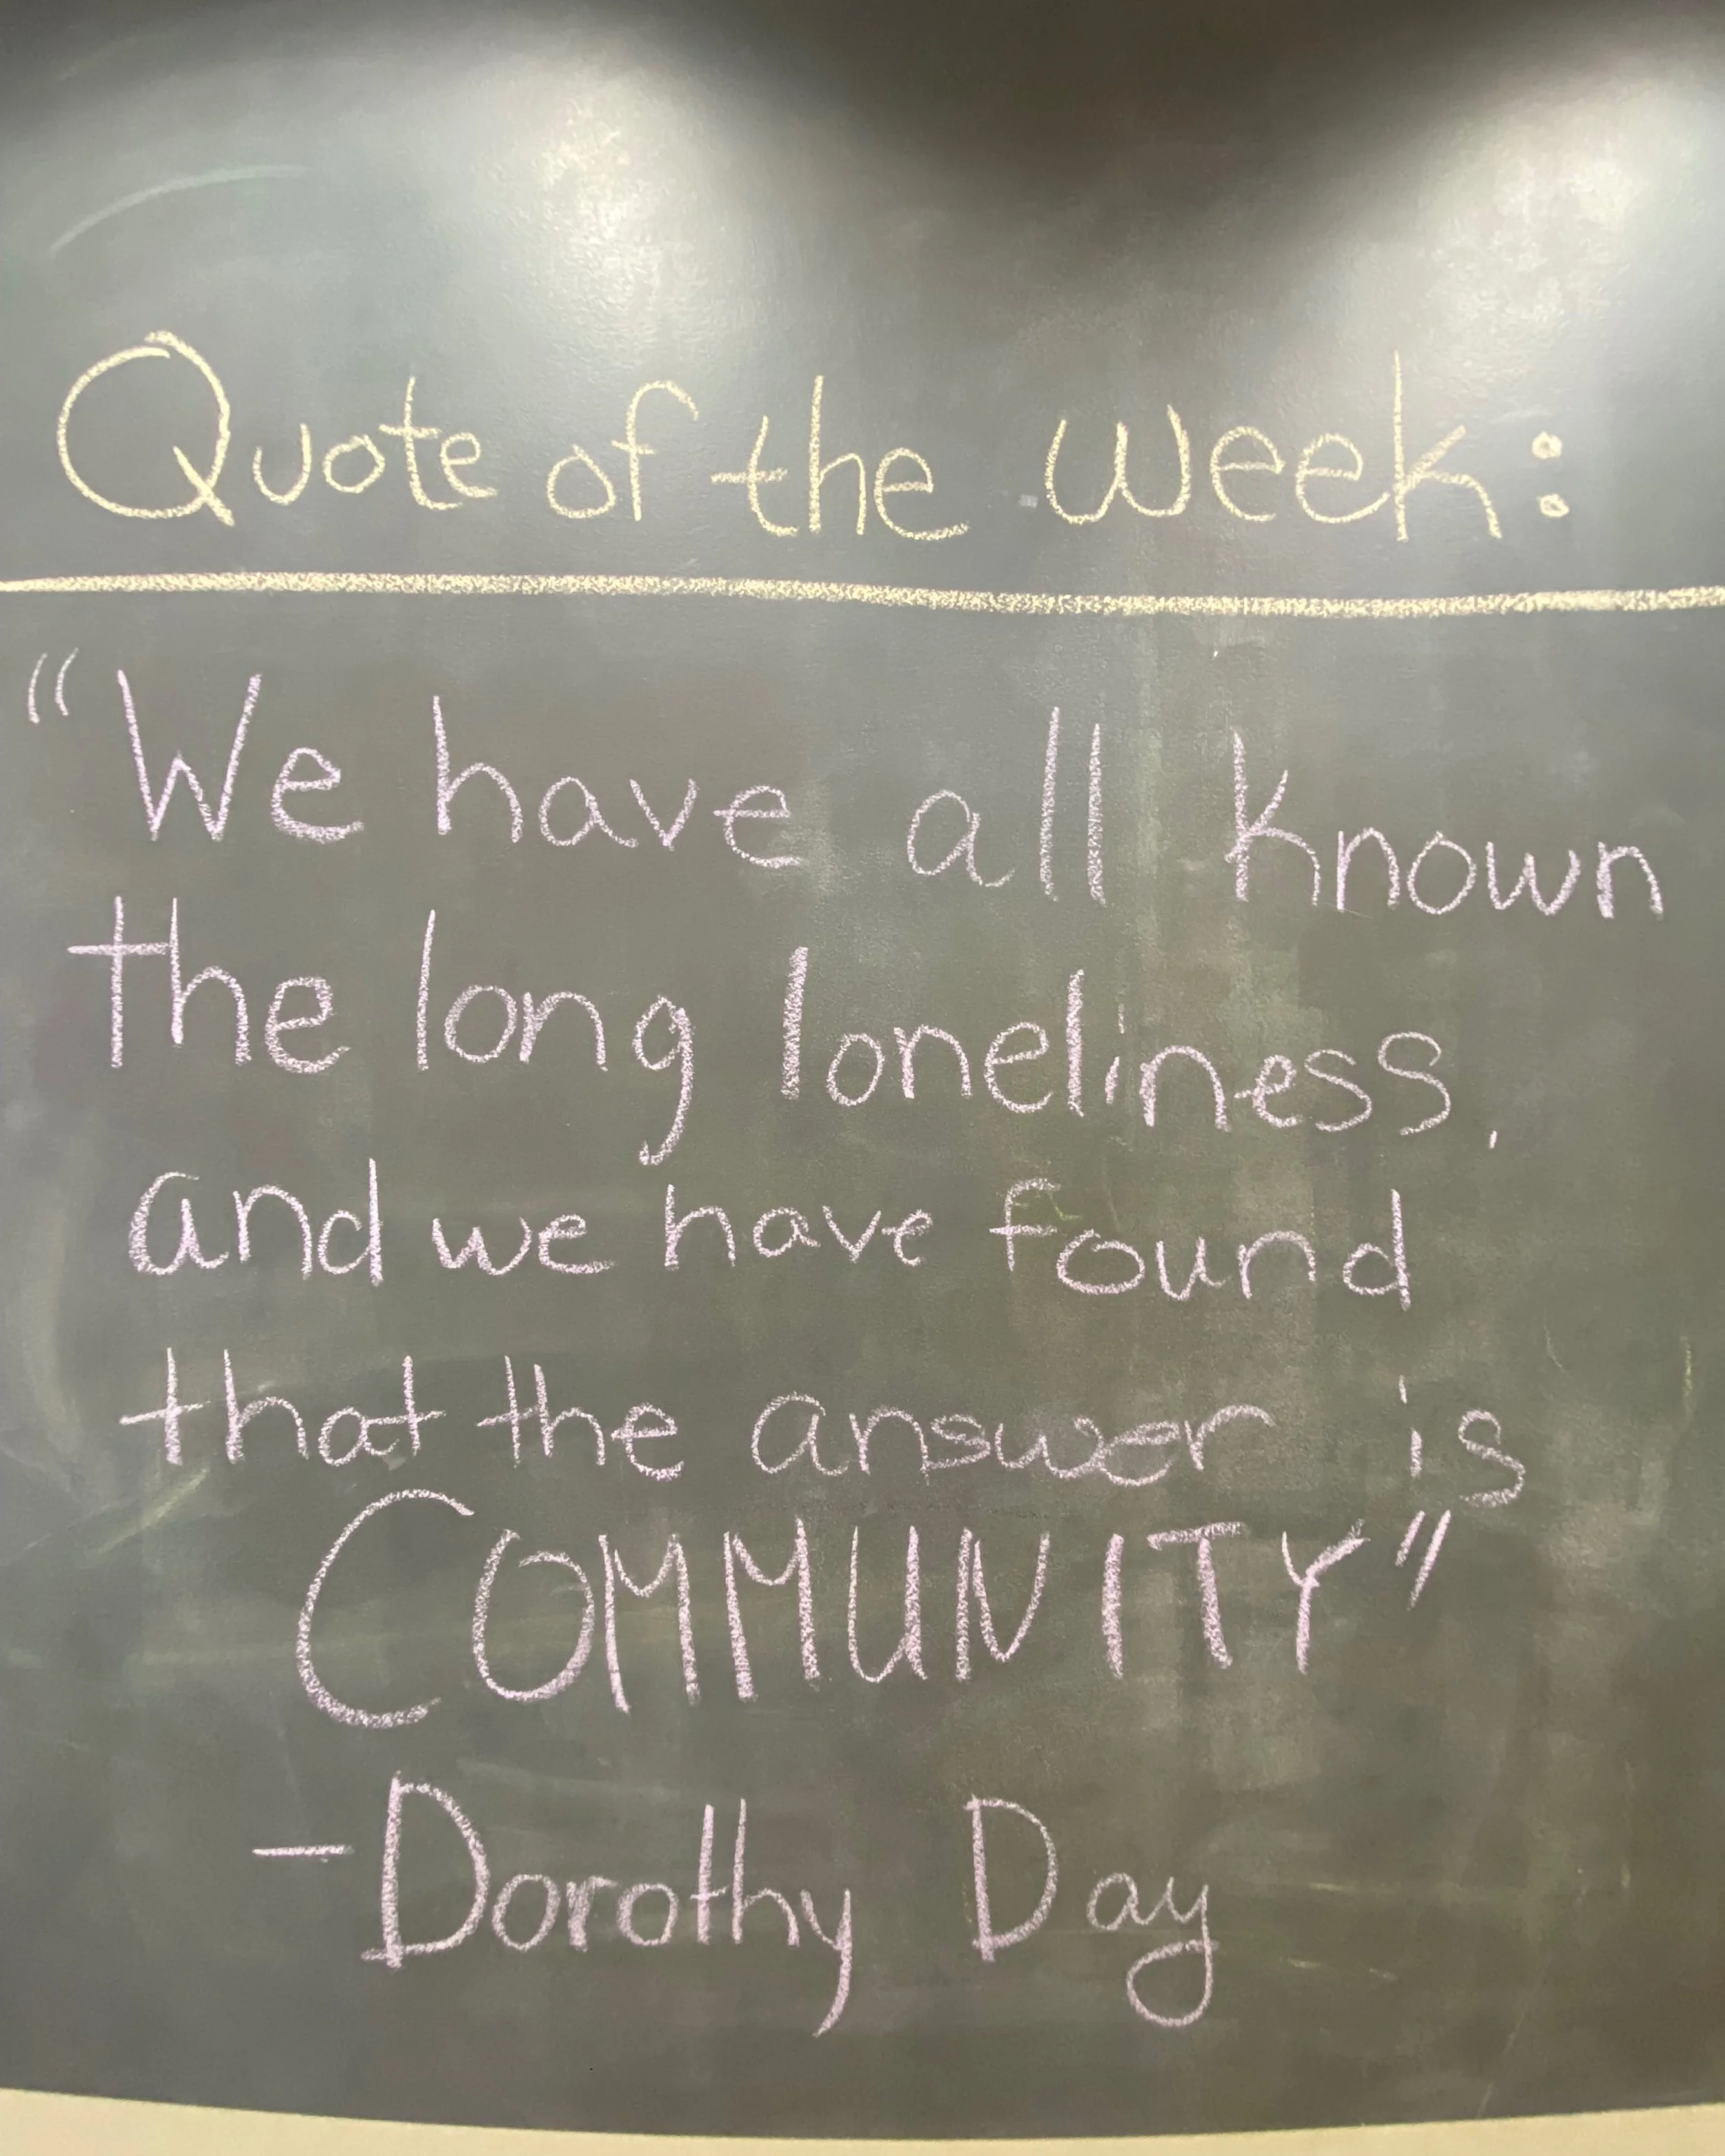 Quote of the week:
"We have all known
the long loneliness,
and we have found
that the answer is
COMMUNITY"
-Dorothy Day